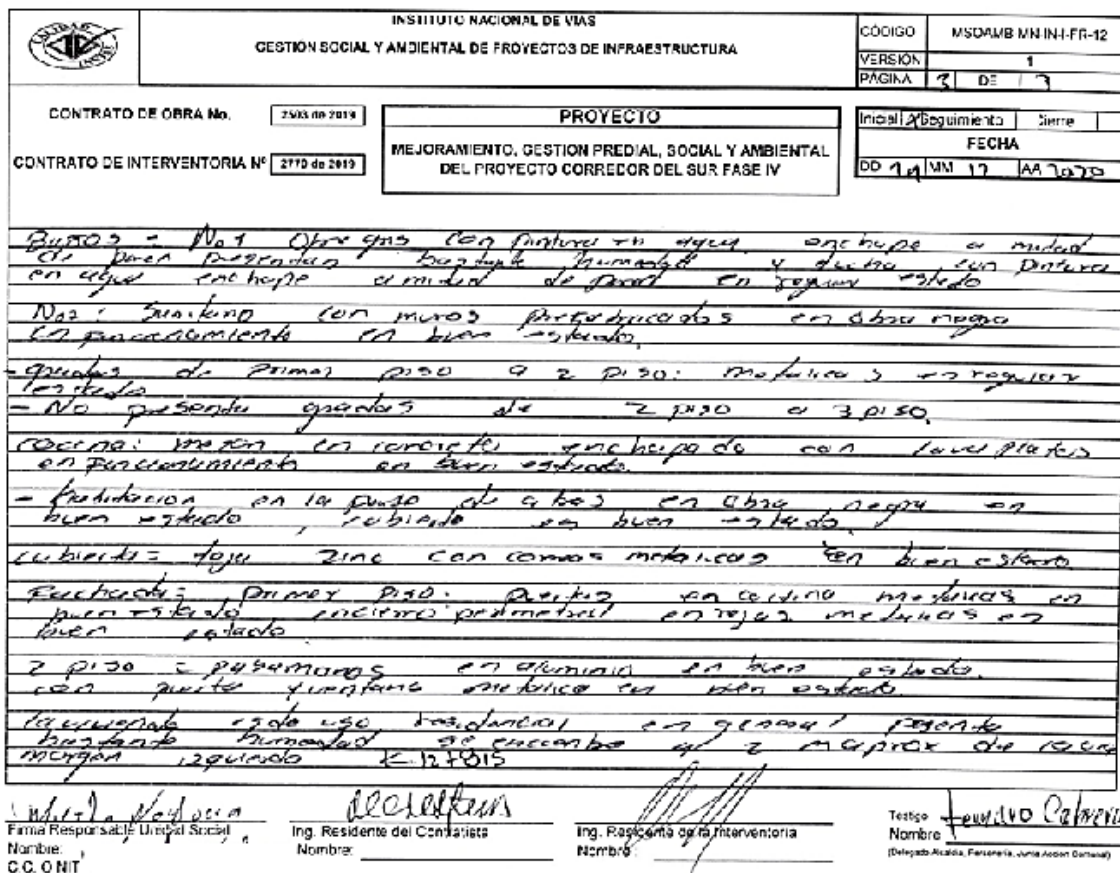 INSTITUTO NACIONAL DE VIAS
GESTION SOCIAL Y AMBIENTAL DE PROYECTOS DE INFRAESTRUCTURA
CÓDIGO MSOAMB-MN-IN-I-FR-12
VERSIÓN 1
PÁGINA 3 DE 3
CONTRATO DE OBRA No. 2503 de 2019
CONTRATO DE INTERVENTORIA Nº 2770 de 2019
PROYECTO
MEJORAMIENTO, GESTION PREDIAL, SOCIAL Y AMBIENTAL
DEL PROYECTO CORREDOR DEL SUR FASE IV
Inicial X Seguimiento Cierre
FECHA
DD MM 12 AA 2020
Baños = No 1 Obra gris con pintura en agua enchape a mitad
de pared presentan bastante humedad y ducha con pintura
en agua enchape a mitad de pared en regular estado
No 2: Sanitario con muros prefabricados en obra negra
en funcionamiento en buen estado.
- gradas de primer piso a 2 piso: metalicas en regular
estado
- No presenta gradas de 2 piso a 3 piso.
cocina: meson en concreto enchapado con lava platos
en funcionamiento en buen estado.
- en la de en obra negra en
buen estado, cubierta en buen estado.
cubierta = teja zinc con correas metalicas en buen estado
Fachada = primer piso: puertas metalicas en
buen estado encierro perimetral en rejas metalicas en
buen estado
2 piso = pasamanos en aluminio en buen estado.
con puerta y ventana metalica en buen estado.
la vivienda es de uso residencial en general presenta
bastante humedad se encuentra a 2 m aprox de
margen izquierdo
Firma Responsable Unidad Social
Nombre:
C.C. O NIT
Ing. Residente del Contratista
Nombre:
Ing. Residente de la Interventoria
Nombre:
Testigo
Nombre
(Delegado Alcaldía, Personería, Junta Acción Comunal)